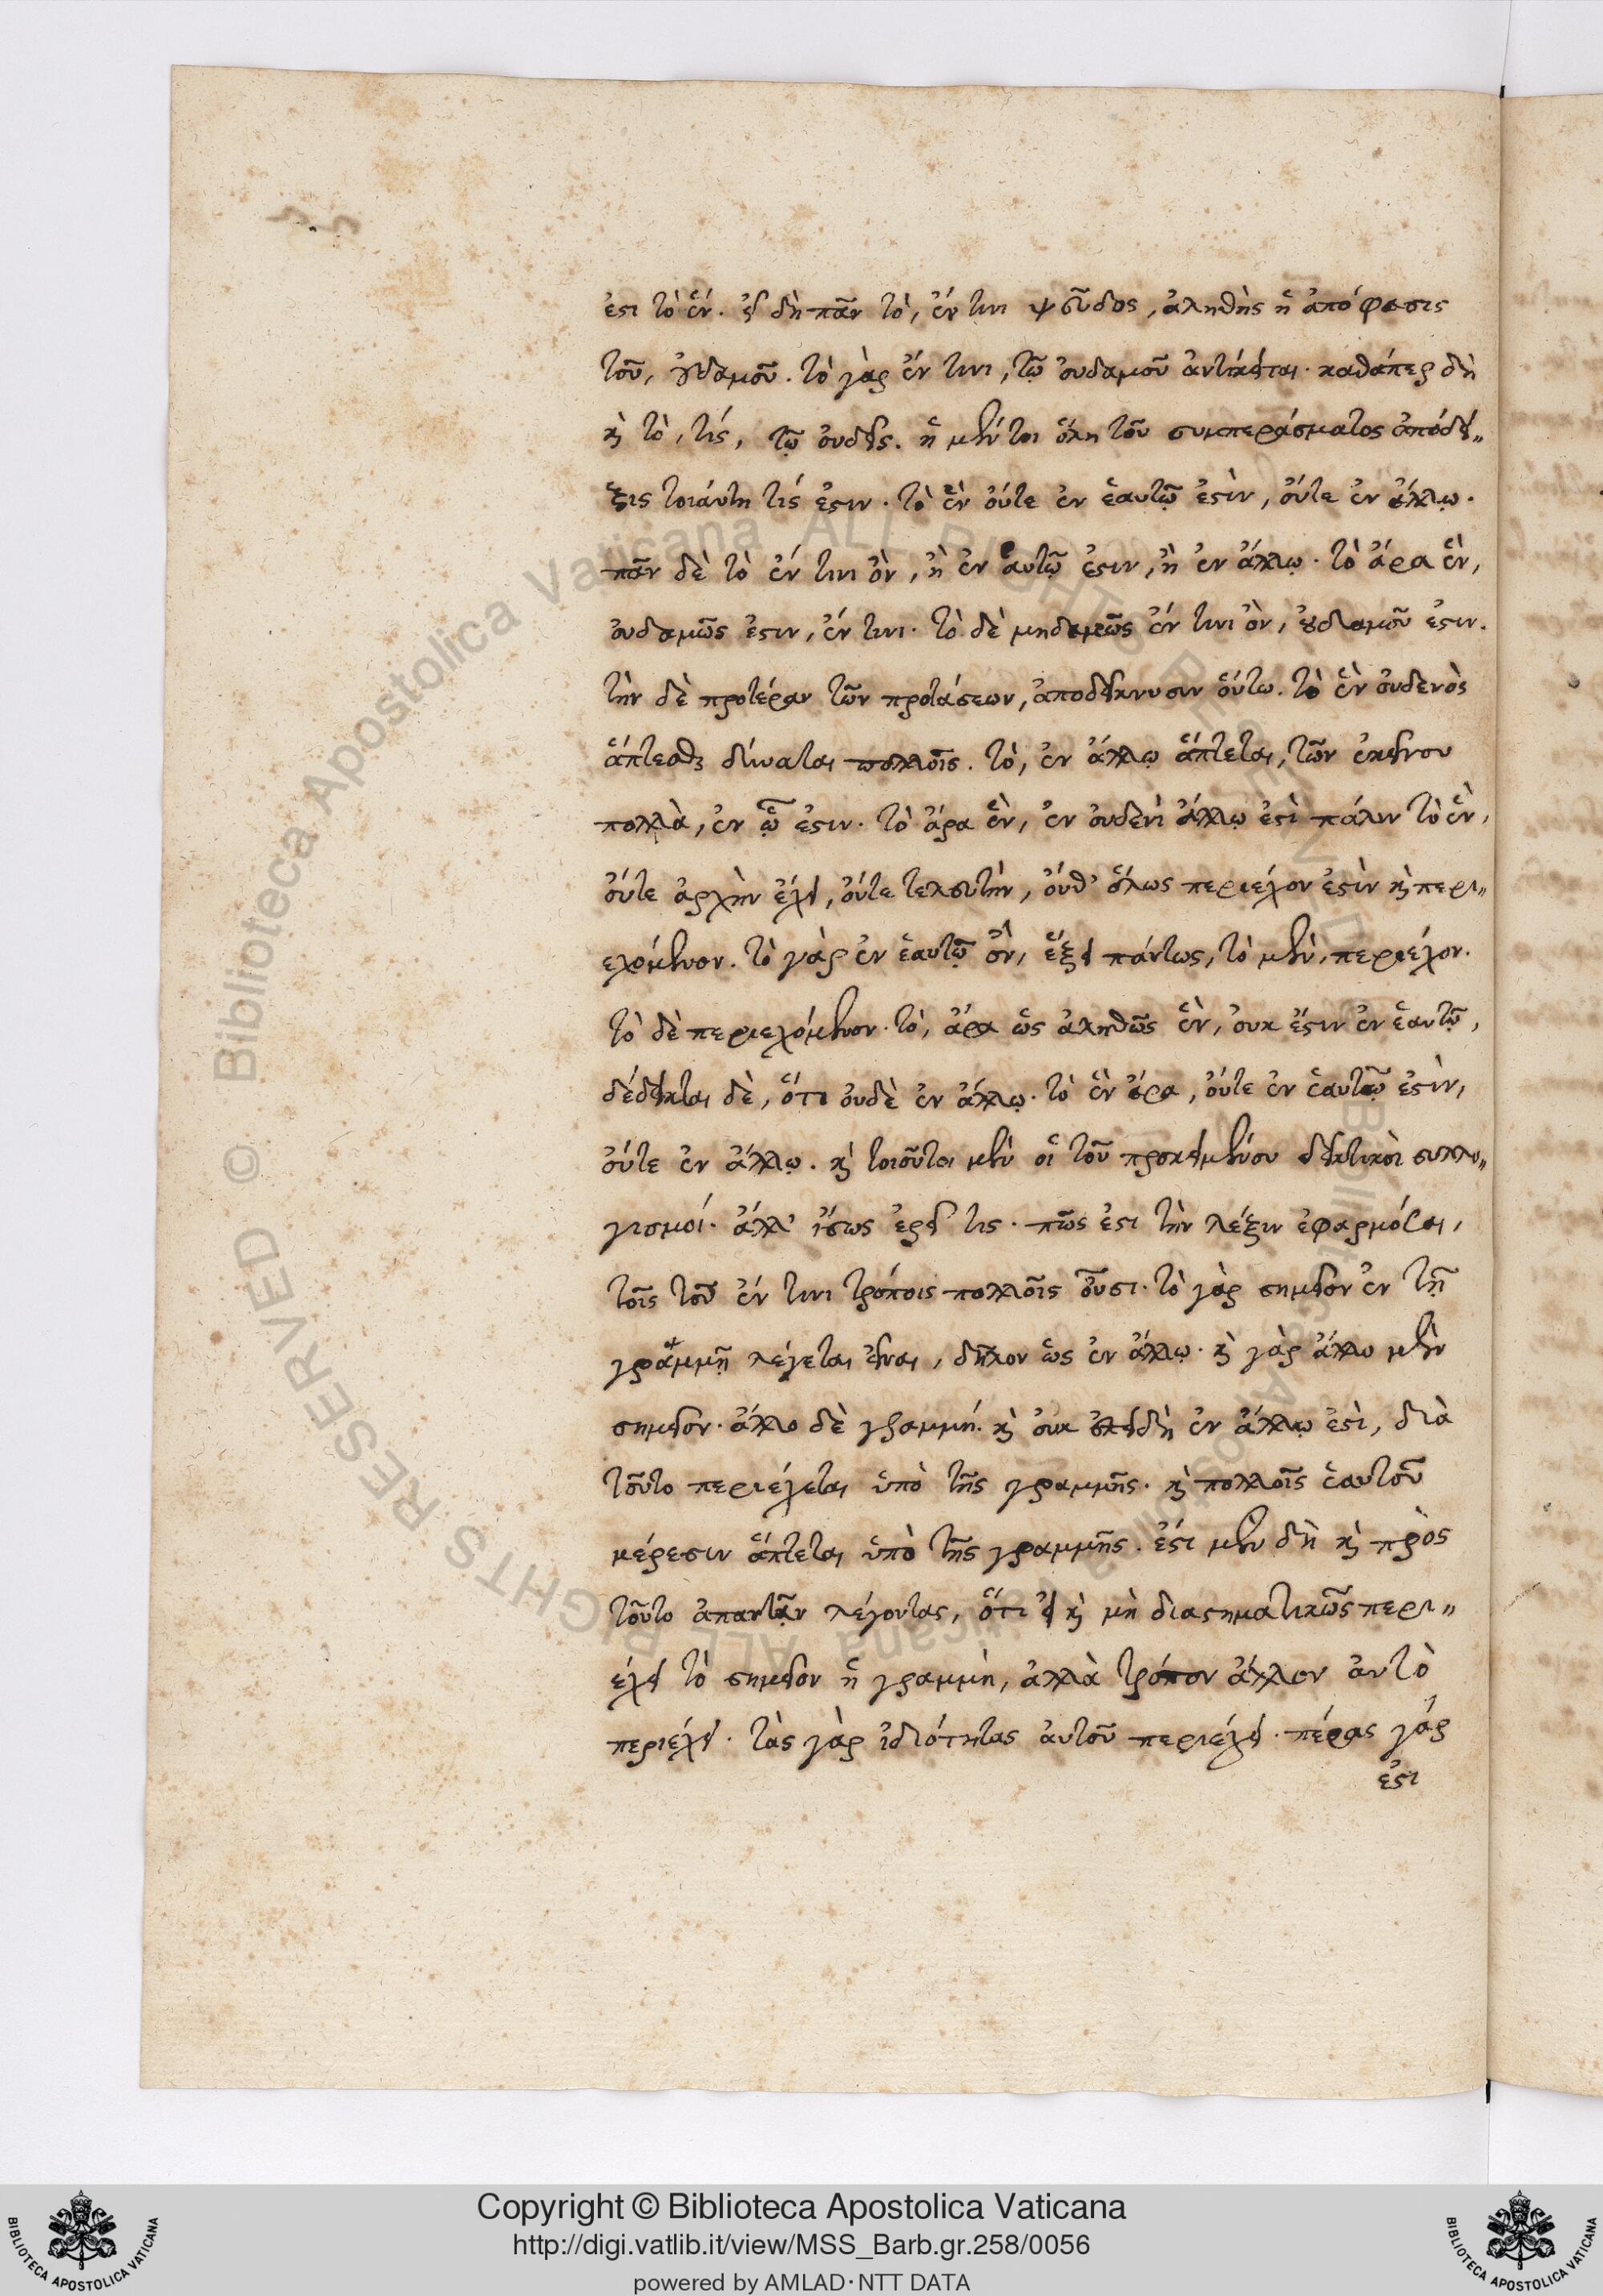 ἐστι τὸ ἕν. εἰ δὴ πᾶν τὸ, ἔν τινι ψεῦδος, ἀληθὴς ἡ ἀπόφασις
τοῦ, οὐδαμοῦ. τὸ γὰρ ἔν τινι, τῷ οὐδαμοῦ ἀντίκειται. καθάπερ δὴ
καὶ τὸ, τίς, τῷ οὐδεὶς. ἡ μέντοι ὅλη τοῦ συμπεράσματος ἀπόδει„
ξις τοιάυτη τίς ἐστιν. τὸ ἓν ὄυτε ἐν ἑαυτῷ ἐστὶν, ὄυτε ἐν ἄλλῳ.
πᾶν δὲ τὸ ἔν τινι ὂν, ἢ ἐν ἑαυτῷ ἐστιν, ἢ ἐν ἄλλῳ. τὸ ἄρα ἓν,
ὀυδαμῶς ἐστιν, ἔν τινι. τὸ δὲ μηδαμῶς ἔν τινι ὂν, οὐδαμοῦ ἐστιν.
τὴν δὲ προτέραν τῶν προτάσεων, ἀποδείκνυσιν ὅυτω. τὸ ἓν ὀυδενὸς
ἅπτεσθαι δύναται πολλοῖς. τὸ, ἐν ἄλλῳ ἅπτεται, τῶν ἐκείνου
πολλὰ, ἐν ᾧ ἐστιν. τὸ ἄρα ἓν, ἐν ὀυδενὶ ἄλλῳ ἐστὶ πάλιν τὸ ἓν,
ὄυτε ἀρχὴν ἔχει, ὄυτε τελευτὴν, ὄυθ' ὅλως περιέχον ἐστὶν καὶ περι„
εχόμενον. τὸ γὰρ ἐν ἑαυτῷ ὂν, ἕξει πάντως, τὸ μὲν, περιέχον.
τὸ δὲ περιεχόμενον. τὸ, ἄρα ὡς ἀληθῶς ἓν, ὀυκ ἔστιν ἐν ἑαυτῷ,
δέδεικται δὲ, ὅτι ὀυδὲ ἐν ἄλλῳ. τὸ ἓν ἄρα, ὄυτε ἐν ἑαυτῷ ἐστὶν,
ὄυτε ἐν ἄλλῳ. καὶ τοιοῦτοι μὲν οἱ τοῦ προκειμένου δεικτικοὶ συλλο„
γισμοί. ἀλλ' ἴσως ἐρεῖ τις. πῶς ἐστι τὴν λέξιν ἐφαρμόσαι,
τοῖς τοῦ ἔν τινι τρόποις πολλοῖς οὖσι. τὸ γὰρ σημεῖον ἐν τῇ
γραμμῇ λέγεται εἶναι, δῆλον ὡς ἐν ἄλλῳ. καὶ γὰρ ἄλλο μὲν
σημεῖον. ἄλλο δὲ γραμμή. καὶ ὀυκ ἐπειδὴ ἐν ἄλλῳ ἐστὶ, διὰ
τοῦτο περιέχεται ὑπὸ τῆς γραμμῆς. καὶ πολλοῖς ἑαυτοῦ
μέρεσιν ἅπτεται ὑπὸ τῆς γραμμῆς. ἔστι μὲν δὴ καὶ πρὸς
τοῦτο ἀπαντᾷν λέγοντας, ὅτι εἰ καὶ μὴ διαστηματικῶς περι„
έχει τὸ σημεῖον ἡ γραμμὴ, ἀλλὰ τρόπον ἄλλον ἀυτὸ
περιέχει. τὰς γὰρ ἰδιότητας ἀυτοῦ περιέχει. πέρας γάρ
ἐστι
Copyright © Biblioteca Apostolica Vaticana
http://digi.vatlib.it/view/MSS_Barb.gr.258/0056
powered by AMLAD·NTT DATA